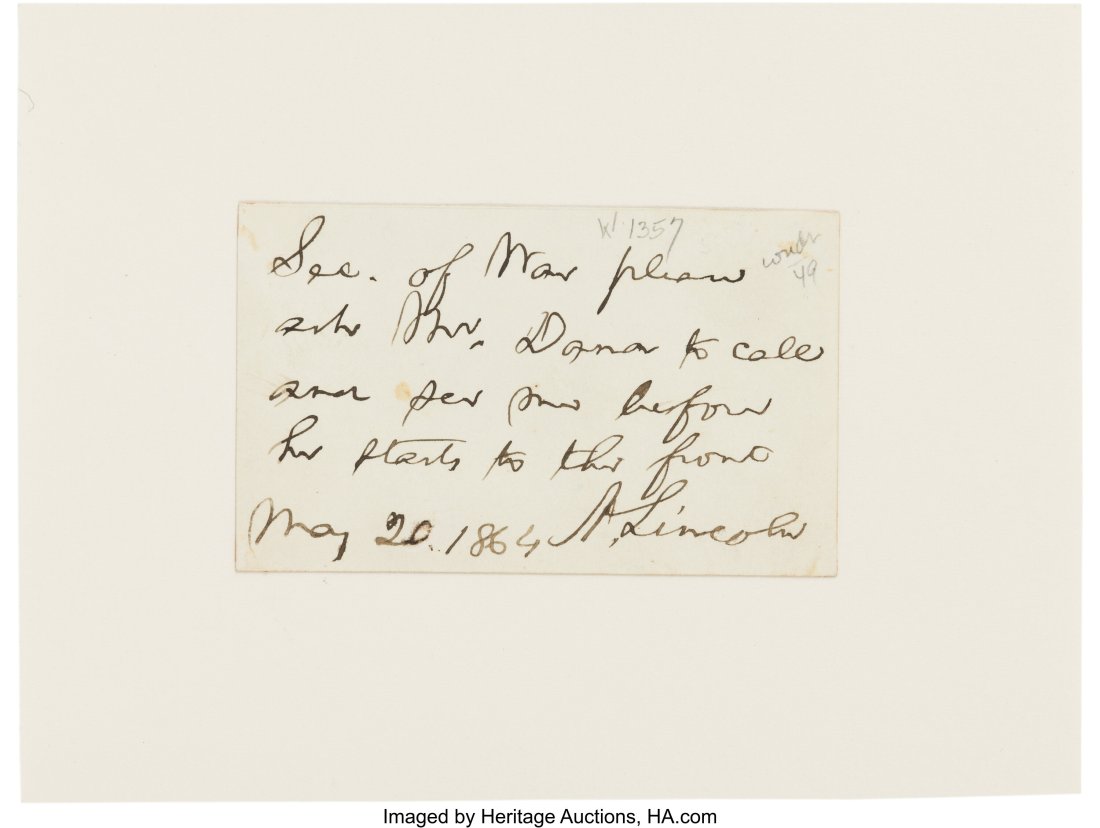 W. 1357
49
Sec. of War please
ask Mr. Dana to call
and see me before
he starts to the front
May 20. 1864 A. Lincoln
Imaged by Heritage Auctions, HA.com